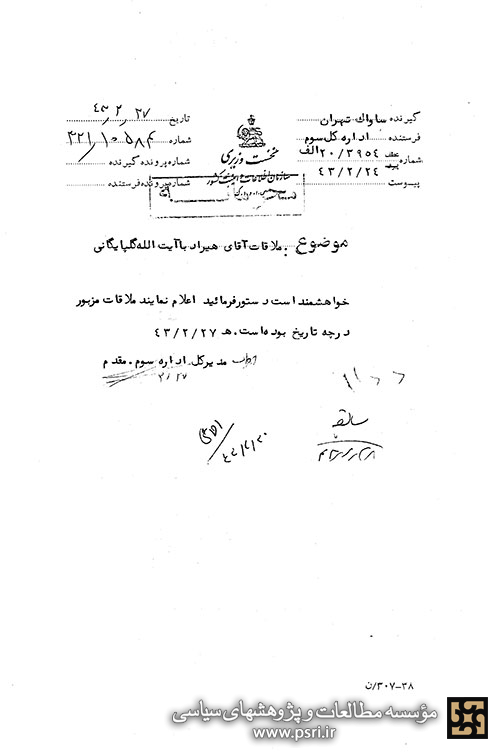 گیرنده ساواک تهران
فرستنده اداره کل سوم
شماره عطف ۲۰/۳۹۵۴ الف
پیرو ۴۳/۲/۲۴
پیوست
نخست وزیری
سازمان اطلاعات و امنیت کشور
تاریخ ۴۳،۲،۲۷
شماره ۳۲۱/۱۰۵۸۴
شماره پرونده گیرنده
شماره پرونده فرستنده
موضوع : ملاقات آقای هیراد با آیت الله گلپایگانی
خواهشمند است دستور فرمائید اعلام نمایند ملاقات مزبور
درچه تاریخ بوده است. هـ ۴۳/۲/۲۷
مدیر کل اداره سوم . مقدم
۲/۲۷
۳۸-۳۰۷/ن
مؤسسه مطالعات و پژوهشهای سیاسی
www.psri.ir